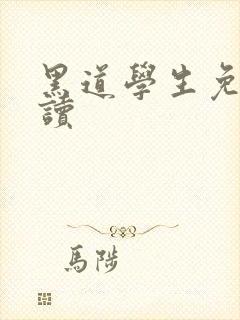 黑道學生免
讀
馬陟